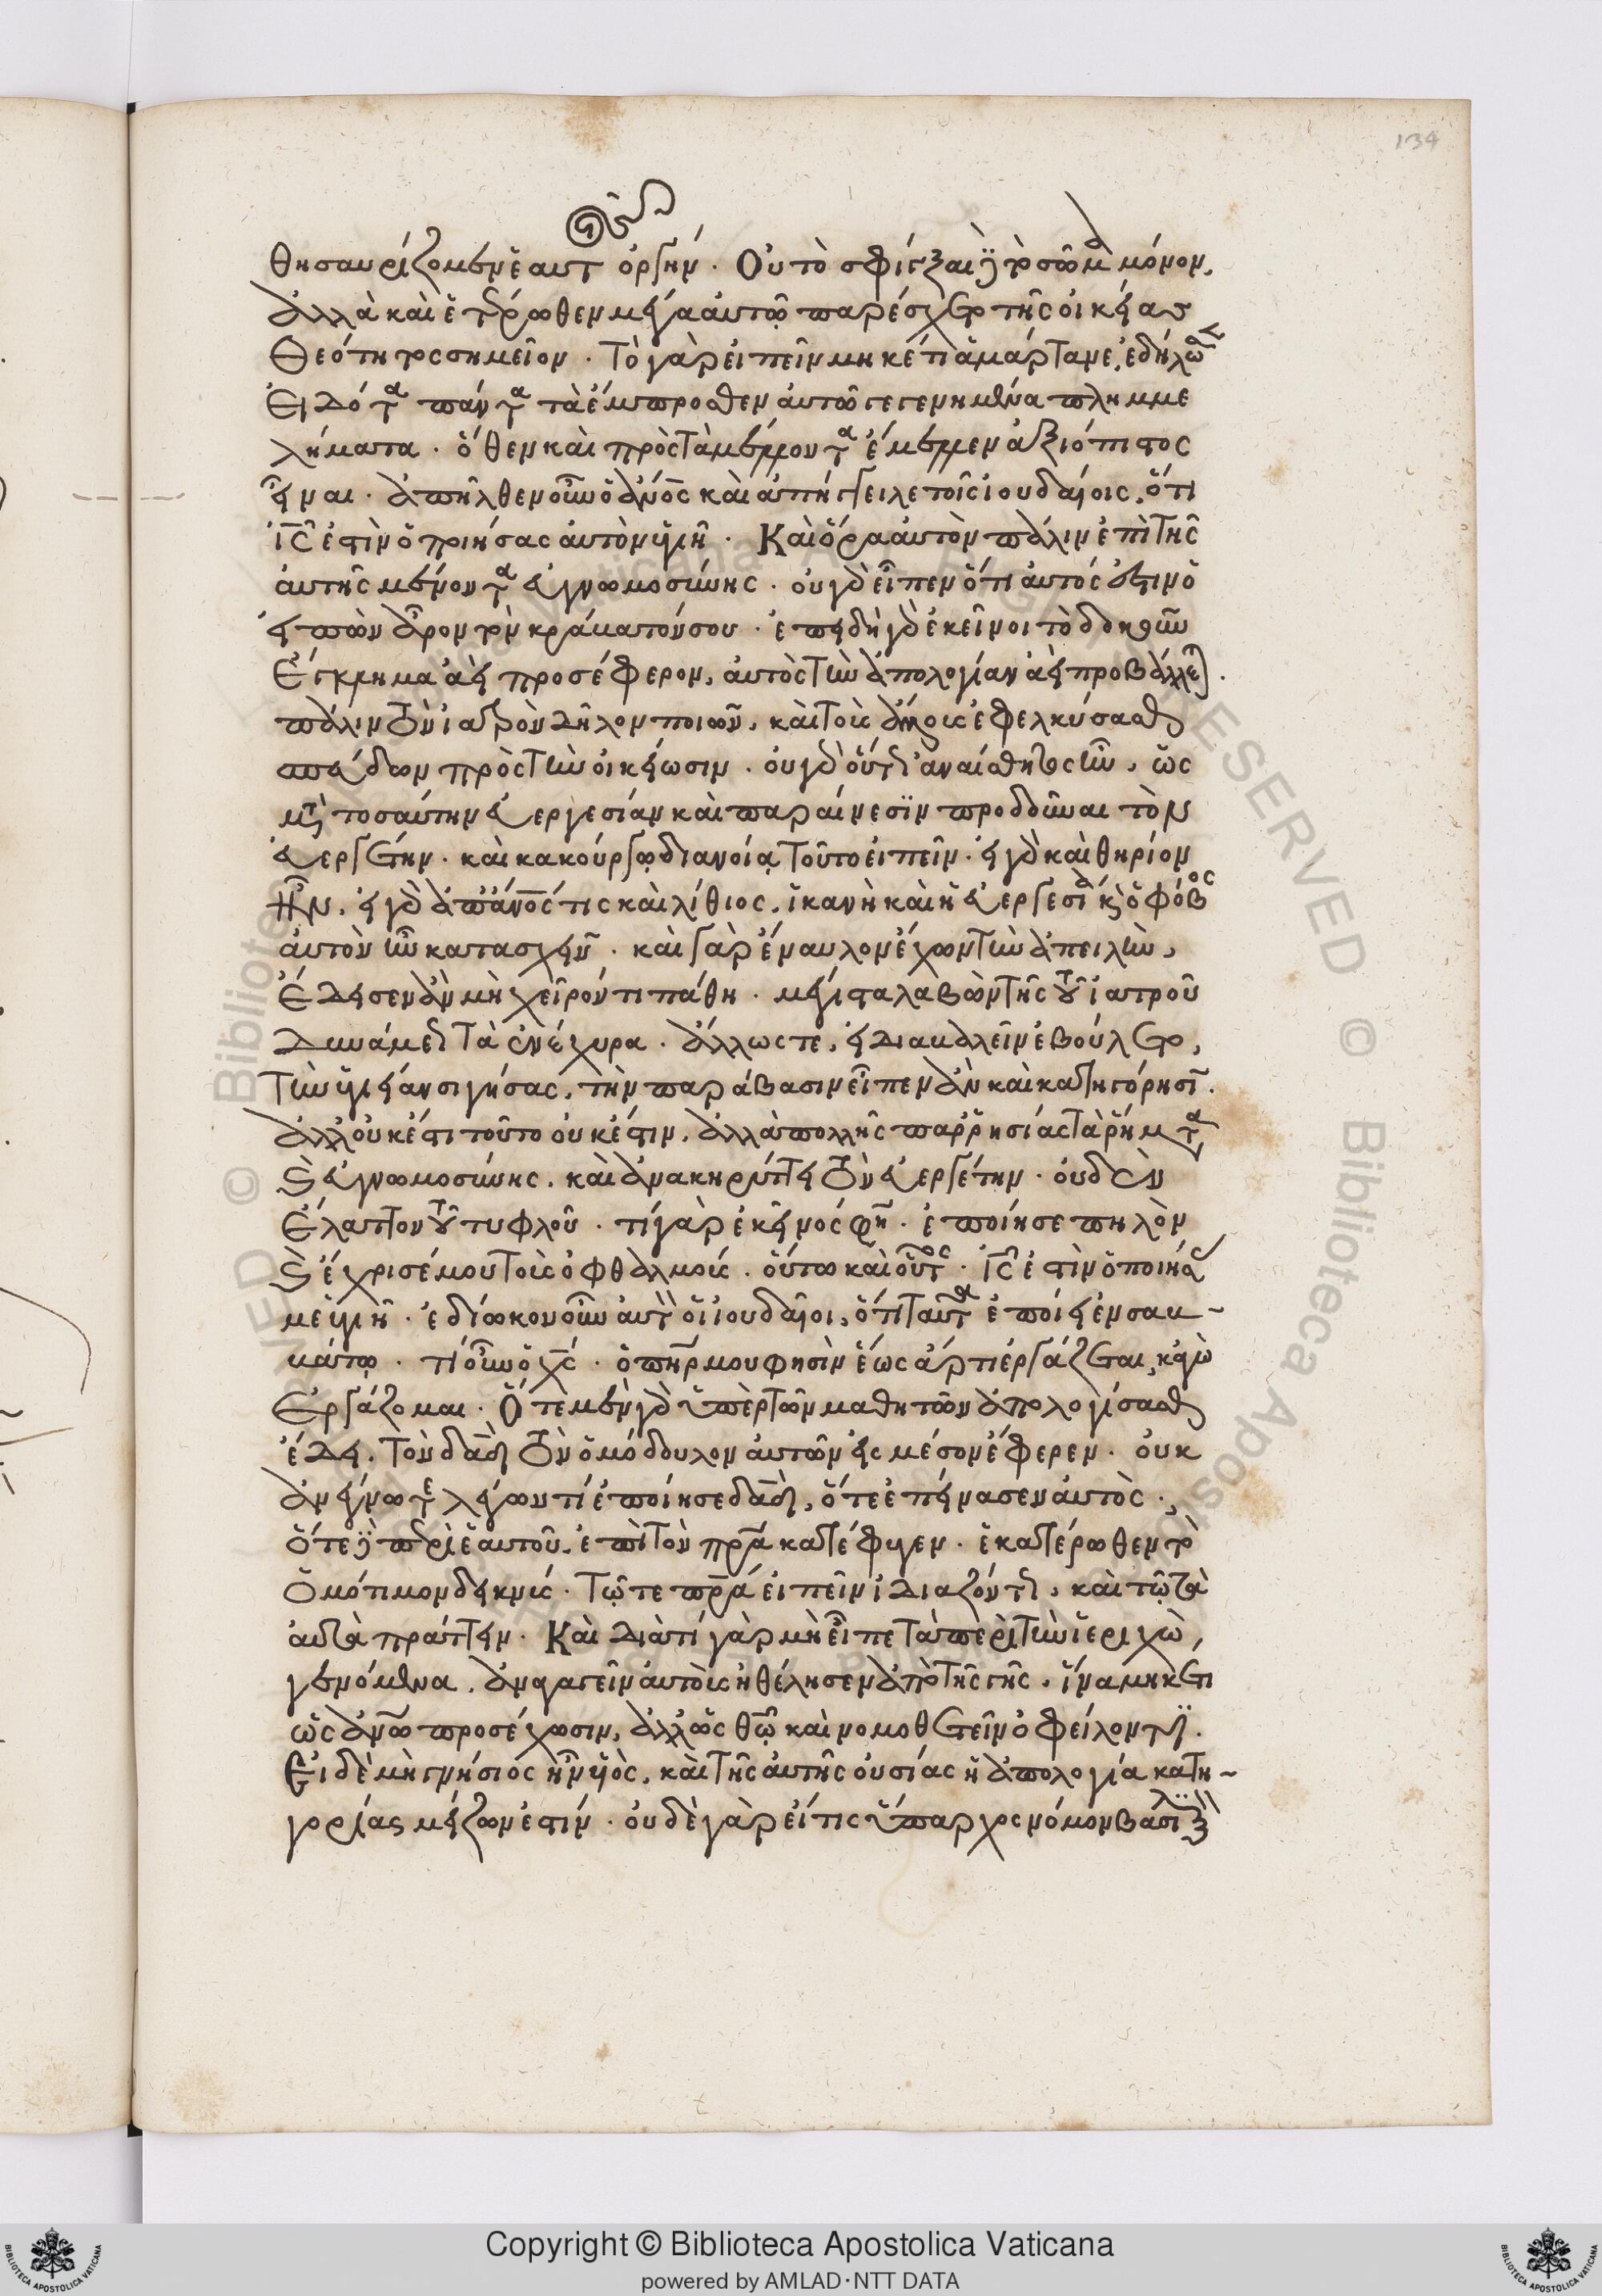 134
θησαυρίζομεν ἑαυτ ὀργήν. Οὐ τὸ σφίγξαι δὲ τὸ σῶμα μόνον,
ἀλλὰ καὶ ἑτέρωθεν μέγα αὐτῷ παρέσχετο τῆς οἰκείας
Θεότητος σημεῖον. Τὸ γὰρ εἰπεῖν μηκέτι ἁμάρτανε, ἐδήλω
Εἰδότα πάντα τὰ ἔμπροσθεν αὐτῷ γεγενημένα πλημμε
λήματα. ὅθεν καὶ πρὸς τὰ μέλλοντα ἔμελλεν ἀξιόπιστος
εἶναι. ἀπῆλθεν οὖν ὁ ἄνος καὶ ἀπήγγειλε τοῖς ἰουδαίοις, ὅτι
ἰς ἐστὶν ὁ ποιήσας αὐτὸν ὑγιῆ. Καὶ ὅρα αὐτὸν πάλιν ἐπὶ τῆς
αὐτῆς μένοντα εὐγνωμοσύνης. οὐ γὰρ εἶπεν ὅτι αὐτός ἐστιν ὁ
εἰπὼν ἆρον τὸν κράβατόν σου. ἐπειδὴ γὰρ ἐκεῖνοι τὸ δοκοῦν
Ἔγκλημα ἀεὶ προσέφερον, αὐτὸς τὴν ἀπολογίαν ἀεὶ προβάλλεται.
πάλιν τὸν ἰατρὸν δῆλον ποιῶν, καὶ τοὺς ἄλλους ἐφελκύσασθαι
σπεύδων πρὸς τὴν οἰκείωσιν. οὐ γὰρ οὕτως ἀναίσθητος ἦν, ὡς
μετὰ τοσαύτην εὐεργεσίαν καὶ παραίνεσιν προδοῦναι τὸν
εὐεργέτην. καὶ κακούργῳ διανοίᾳ τοῦτο εἰπεῖν. εἰ γὰρ καὶ θηρίον
ἦν, εἰ γὰρ ἀπάνος τις καὶ λίθινος, ἱκανὴ καὶ ἡ εὐεργεσία καὶ ὁ φόβος
αὐτὸν ἦν κατασχεῖν. καὶ γὰρ ἔναυλον ἔχων τὴν ἀπειλὴν,
Ἔδεισεν ἂν μὴ χεῖρόν τι πάθῃ. μέγιστα λαβὼν τῆς τοῦ ἰατροῦ
Δυνάμεως τὰ ἐνέχυρα. ἄλλως τε, εἰ διαβαλεῖν ἐβούλετο,
Τὴν ὑγείαν σιγήσας, τὴν παράβασιν εἶπεν ἂν καὶ κατηγόρησεν.
ἀλλ οὐκ ἔστι τοῦτο οὐκ ἔστιν, ἀλλὰ πολλῆς παρρησίας τὰ ῥήματα
καὶ εὐγνωμοσύνης. καὶ ἀνακηρύττει τὸν εὐεργέτην. οὐδὲν
Ἔλαττον τοῦ τυφλοῦ. τί γὰρ ἐκεῖνός φη. ἐποίησε πηλὸν
καὶ ἔχρισέ μου τοὺς ὀφθαλμούς. οὕτω καὶ οὗτος. ἰς ἐστὶν ὁ ποιήσας
με ὑγιῆ. ἐδίωκον οὖν αὐτὸν οἱ ἰουδαῖοι, ὅτι ταῦτα ἐποίει ἐν σαβ-
βάτῳ. τί οὖν ὁ χς. ὁ πηρ μου φησὶν ἕως ἄρτι ἐργάζεται, κἀγὼ
Ἐργάζομαι. Ὅτε μὲν γὰρ ὑπὲρ τῶν μαθητῶν ἀπολογήσασθαι
ἔδει, Τὸν δαδ τὸν ὁμόδουλον αὐτῶν εἰς μέσον ἔφερεν. οὐκ
ἀνέγνωτε λέγων τί ἐποίησε δαδ, ὅτε ἐπείνασεν αὐτὸς.
Ὅτε δὲ περὶ ἑαυτοῦ, ἐπὶ τὸν πρα κατέφυγεν. ἑκατέρωθεν τὸ
Ὁμότιμον δεικνύς. Τῷ τε πρα εἰπεῖν ἰδιαζόντως, καὶ τῷ τὰ
αὐτὰ πράττειν. Καὶ διατί γὰρ μὴ εἶπε τὰ περὶ τὴν ἱεριχὼ,
γενόμενα. ἀναγαγεῖν αὐτοὺς ἠθέλησεν ἀπὸ τῆς γῆς. ἵνα μηκέτι
ὡς ἀνω προσέχωσιν, ἀλλ ὡς θῶ καὶ νομοθετεῖν ὀφείλοντι.
Εἰ δὲ μὴ γνήσιος ἦν υἱὸς, καὶ τῆς αὐτῆς οὐσίας ἡ ἀπολογία κατη-
γορίας μείζων ἐστίν. οὐδὲ γὰρ εἴ τις ὕπαρχος νόμον βασι
Copyright © Biblioteca Apostolica Vaticana
powered by AMLAD·NTT DATA